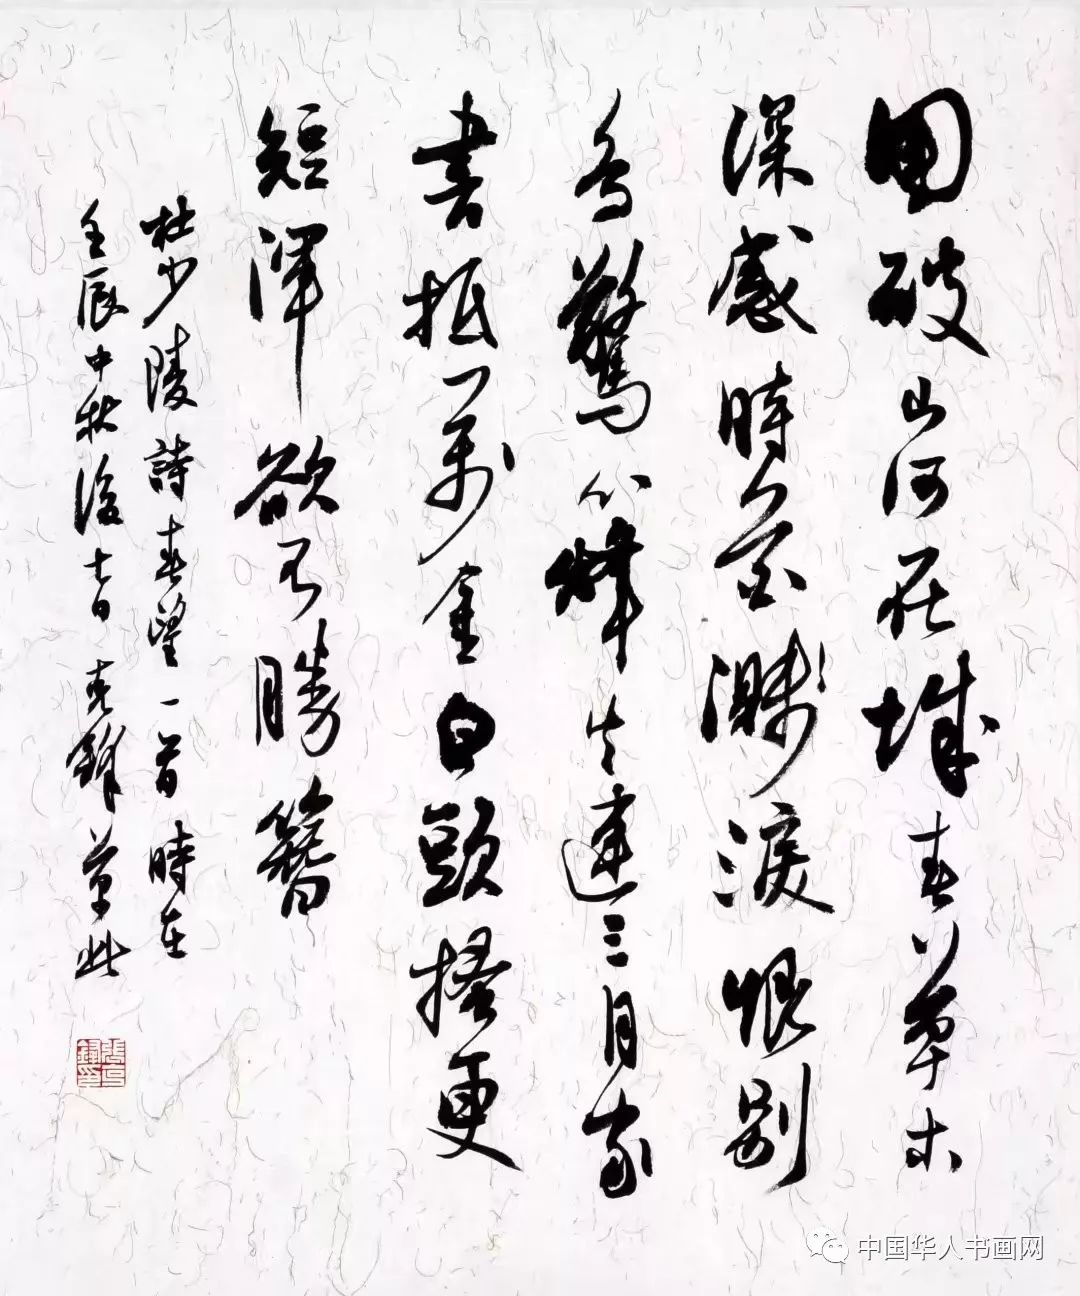 國破山河在城春草木
深感時花濺淚恨別
鳥驚心烽火連三月家
書抵萬金白頭搔更
短渾欲不勝簪
杜少陵詩春望一首時在
壬辰中秋後 克鋒草此
中国华人书画网